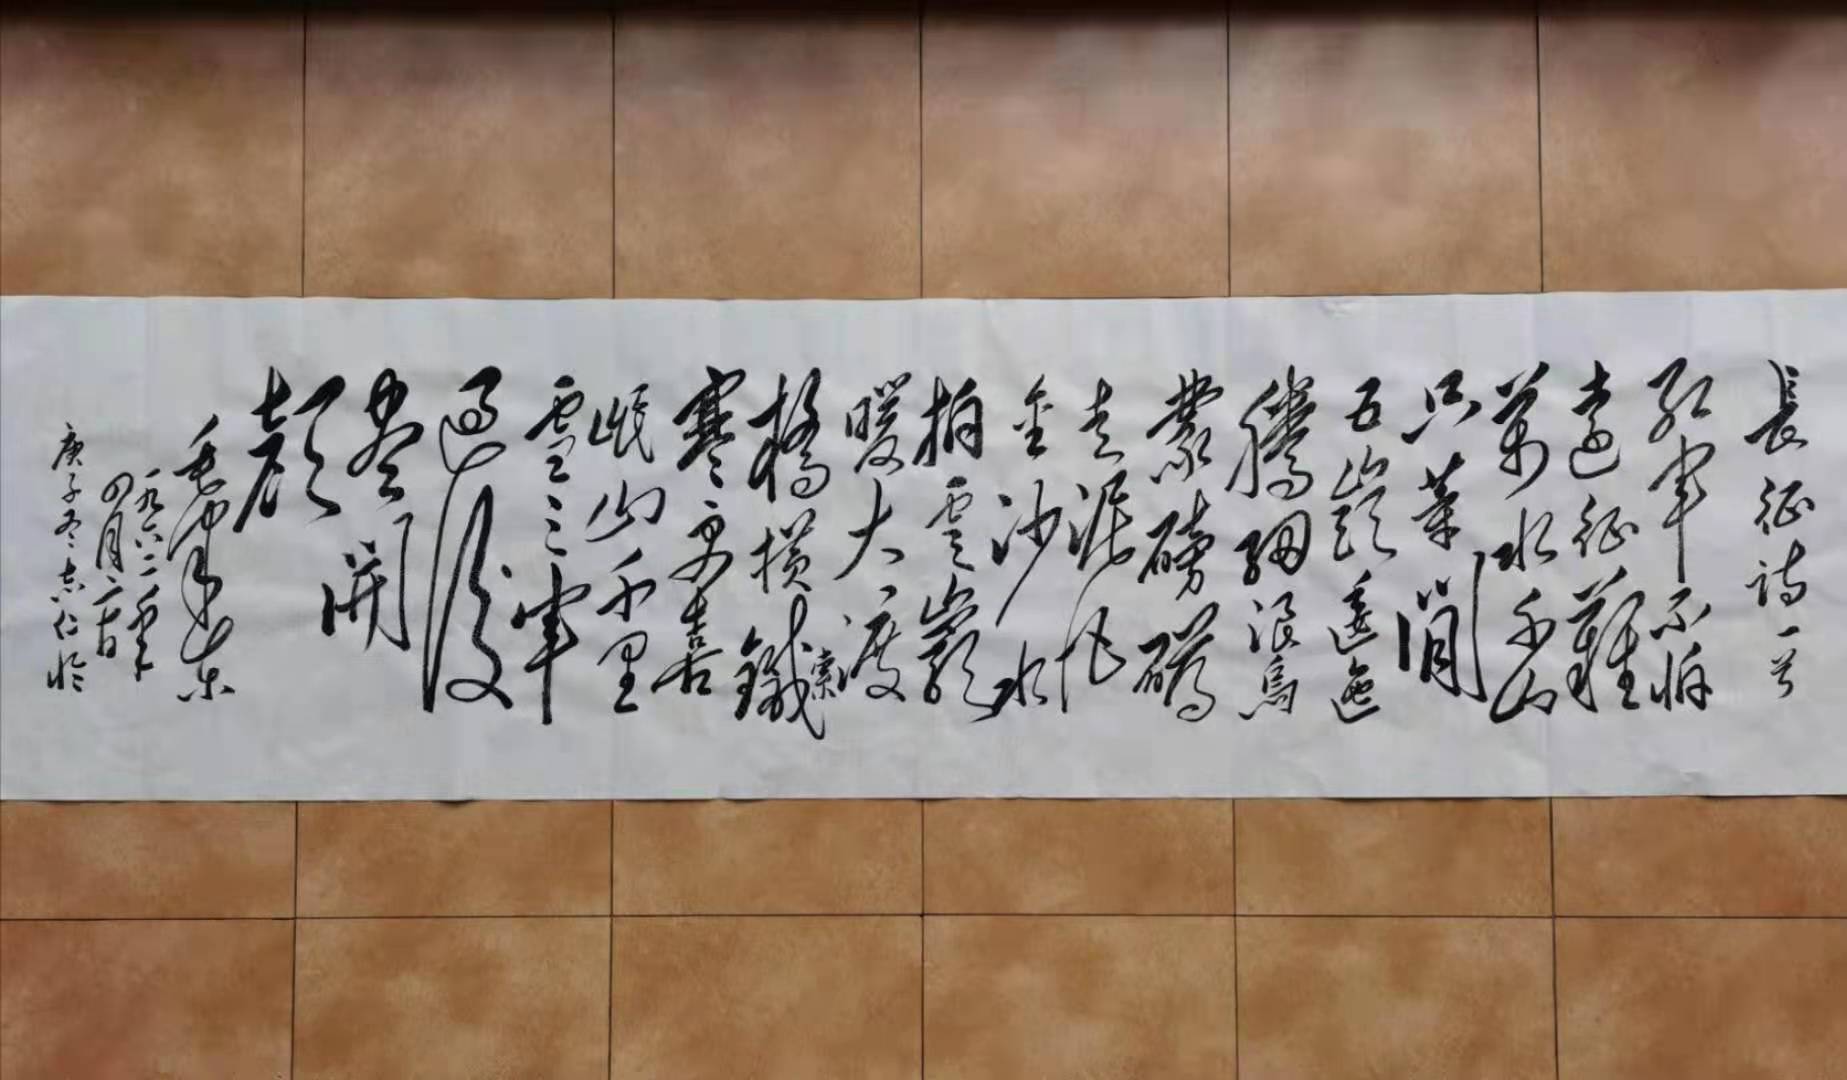 長征詩一首
红軍不怕
遠征難
萬水千山
只等閒
五嶺逶迤
腾细浪烏
蒙磅礴
走泥丸
金沙水
拍雲崖
暖大渡
橋橫鐵索
寒更喜
岷山千里
雪三軍
過後
盡開
顏
毛澤東
一九六二年
四月二十日
庚子冬志仁於